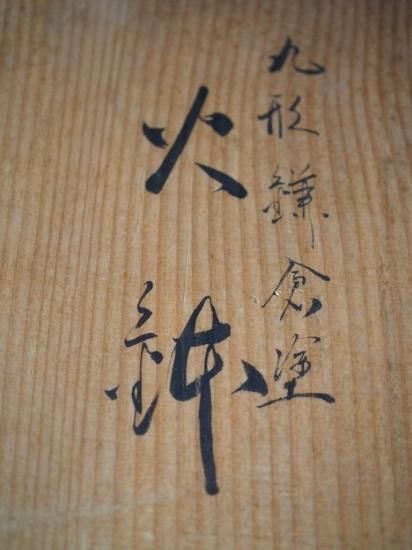 丸形鎌倉塗
火鉢